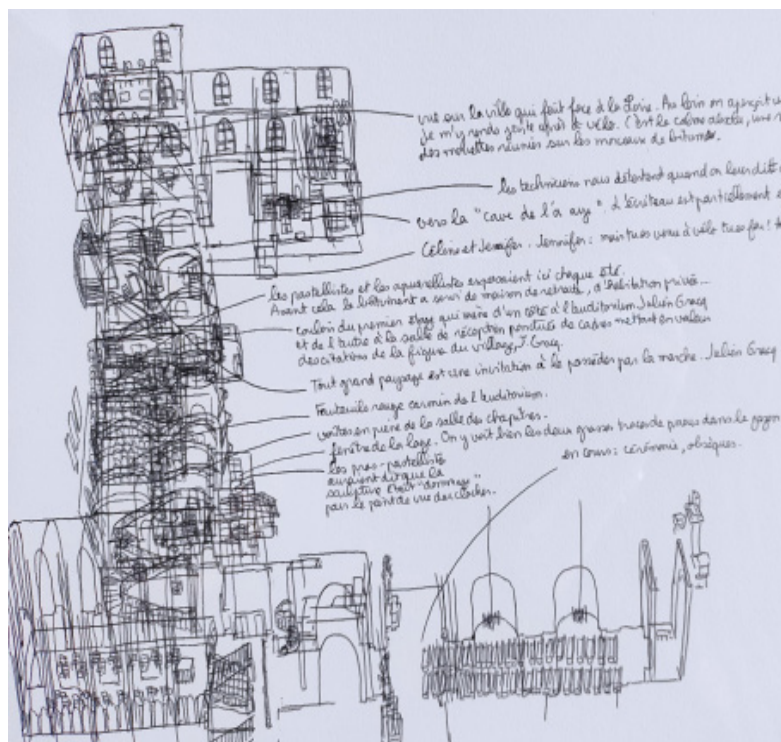 vue sur la ville qui fait face à la Loire. Au loin on aperçoit u
je m'y rends juste après à vélo. C'est le calme absolu, une
des mouettes réunies sur les morceaux de bitume.
les techniciens nous détestent quand on leur dit
vers la "cave de l'a ay". L'écriteau est partiellement
Céline et Jennifer. Jennifer : mais tu es venu à vélo tu es fou !
les pastellistes et les aquarellistes exposaient ici chaque été.
Avant cela le bâtiment a servi de maison de retraite, d'habitation privée...
couloir du premier étage qui mène d'un côté à l'auditorium Julien Gracq
et de l'autre à la salle de réception pendues de cadres mettant en valeur
des citations de la figure du village, J. Gracq.
Tout grand paysage est une invitation à le posséder par la marche. Julien Gracq
Fauteuils rouge carmin de l'auditorium.
voûtes en pierre de la salle des chapitres.
fenêtre de la loge. On y voit bien les deux grosses traces de pneus dans le gazon
les pros-pastelliste
auraient dit que la
sculpture était "dommage"
pour le point de vue du clocher.
en cours : cérémonie, obsèques.